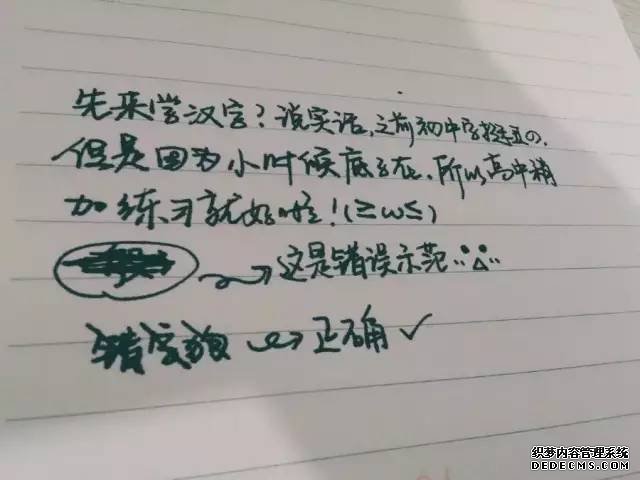 先来尝汉字？说实话，之前初中字挺丑の，
但是因为小时候底子在，所以高中稍
加练习就好啦！(≥ω≤)
这是错误示范
→正确✓
织梦内容管理系统
DEDECMS.COM